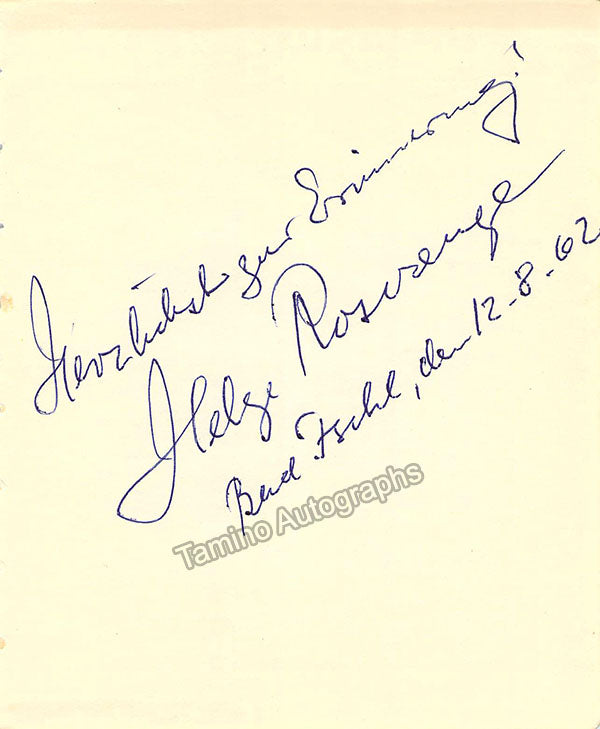 Herzlichst zur Erinnerung!
Helge Roswaenge
Bad Ischl, den 12-8-62
Tamino Autographs